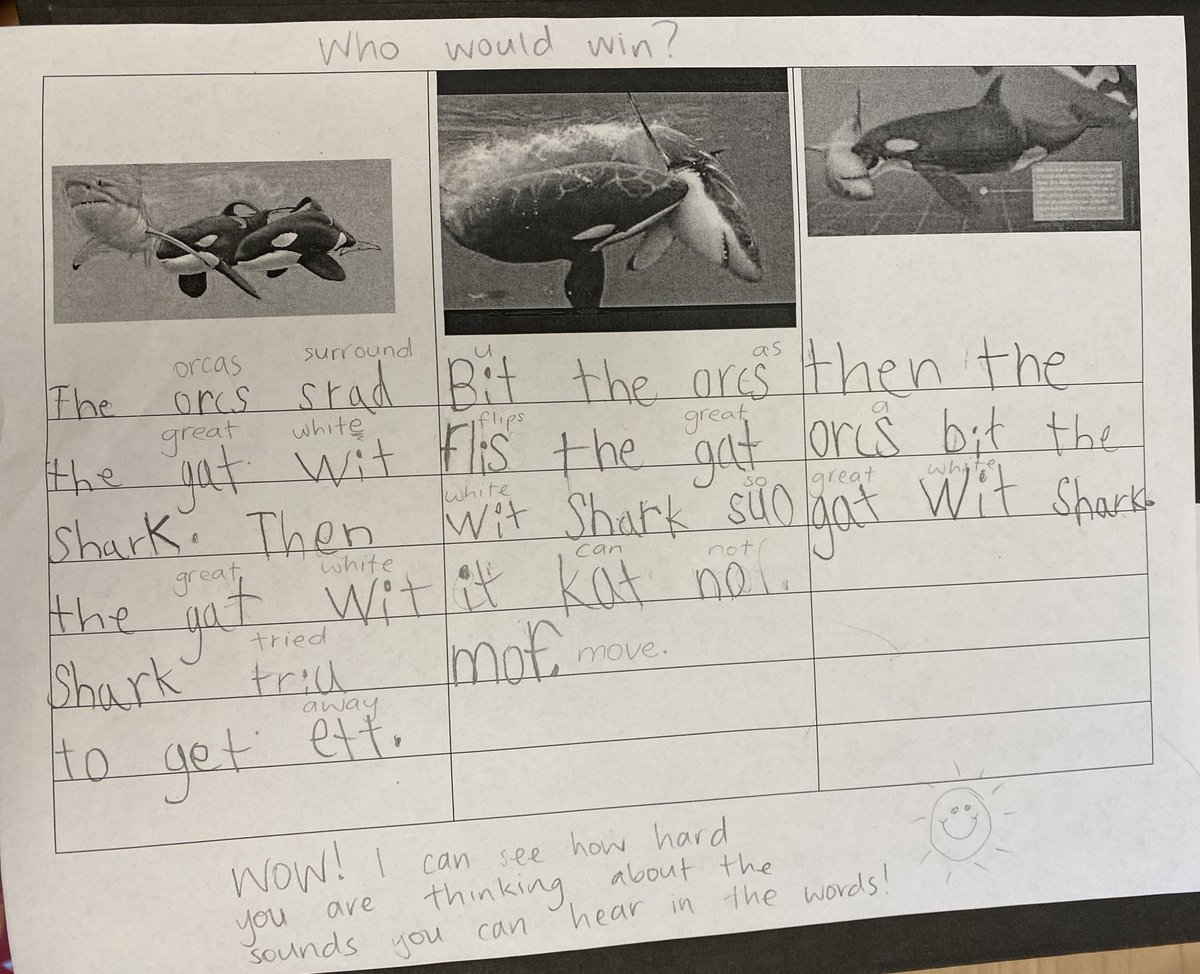 Who would win?
orcas surround
The orcs srad
great white
the gat wit
Shark. Then
great white
the gat wit
tried
Shark triu
away
to get ett.
u as
Bit the orcs
flips great
flis the gat
white so
wit Shark suo
can not
it kat not.
mof move.
then the
a
orcs bit the
great white
gat wit Shark.
WOW! I can see how hard
you are thinking about the
sounds you can hear in the words!